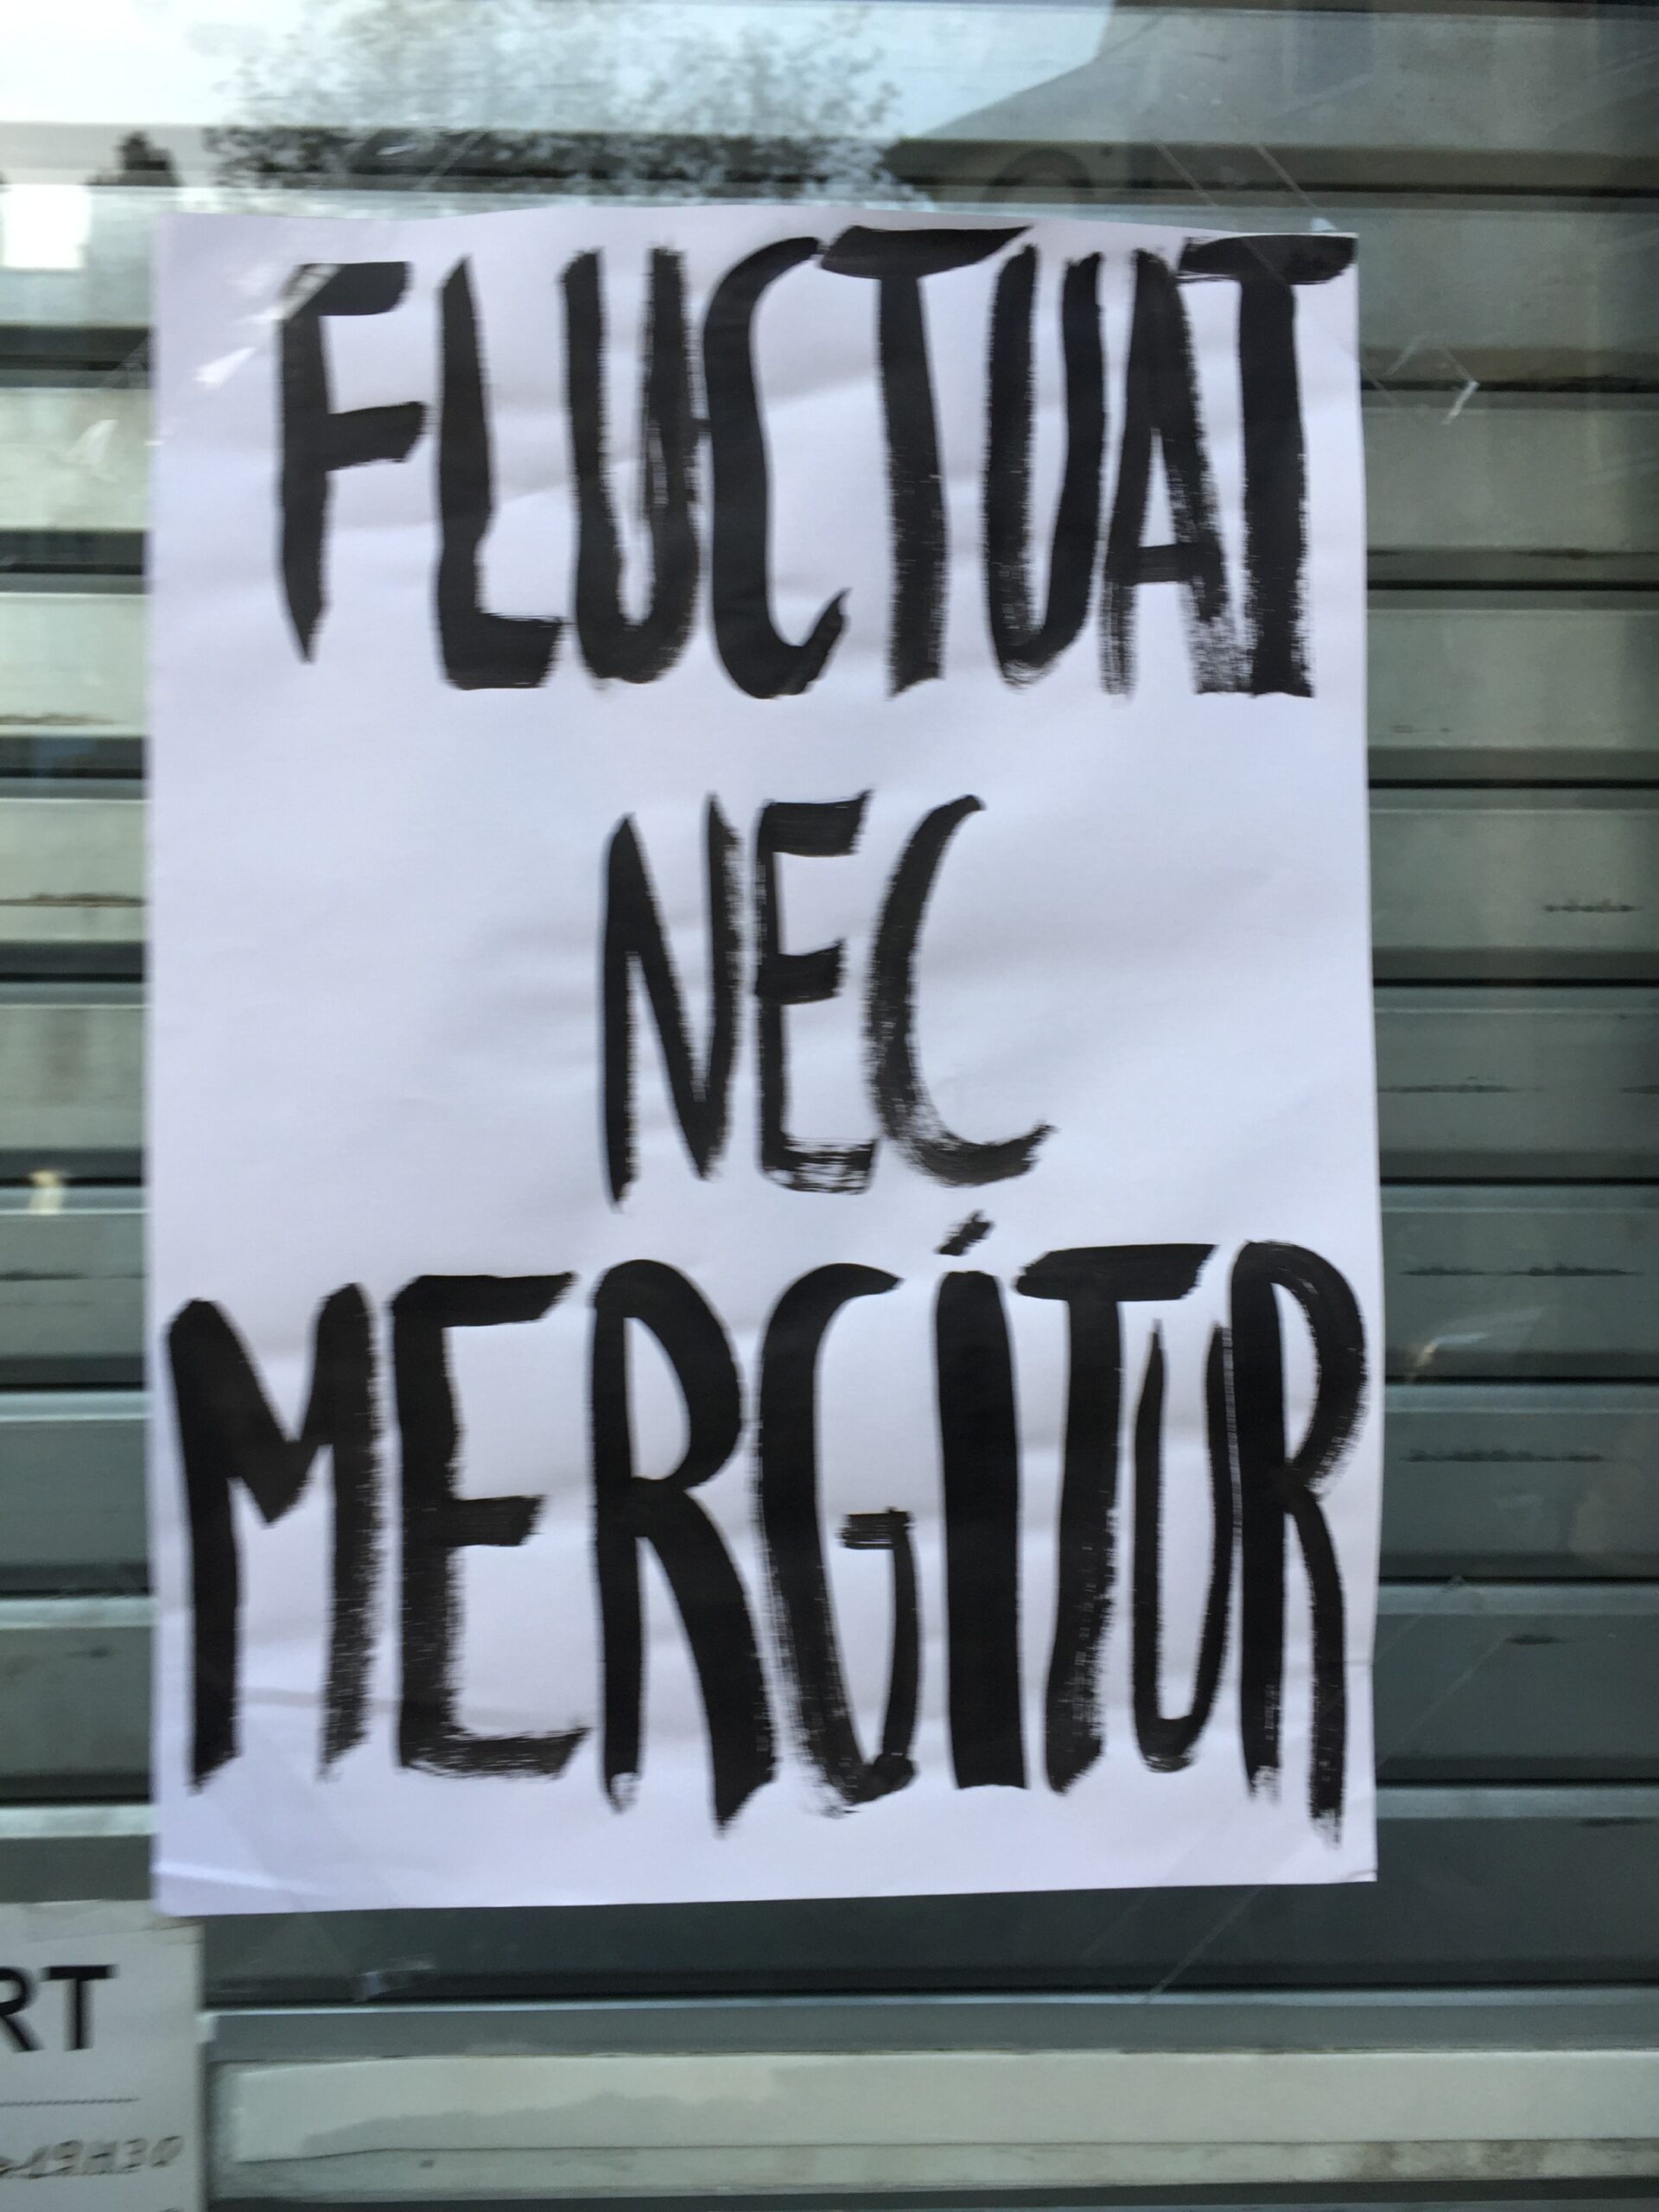 FLUCTUAT
NEC
MERGÍTUR
RT
19H30